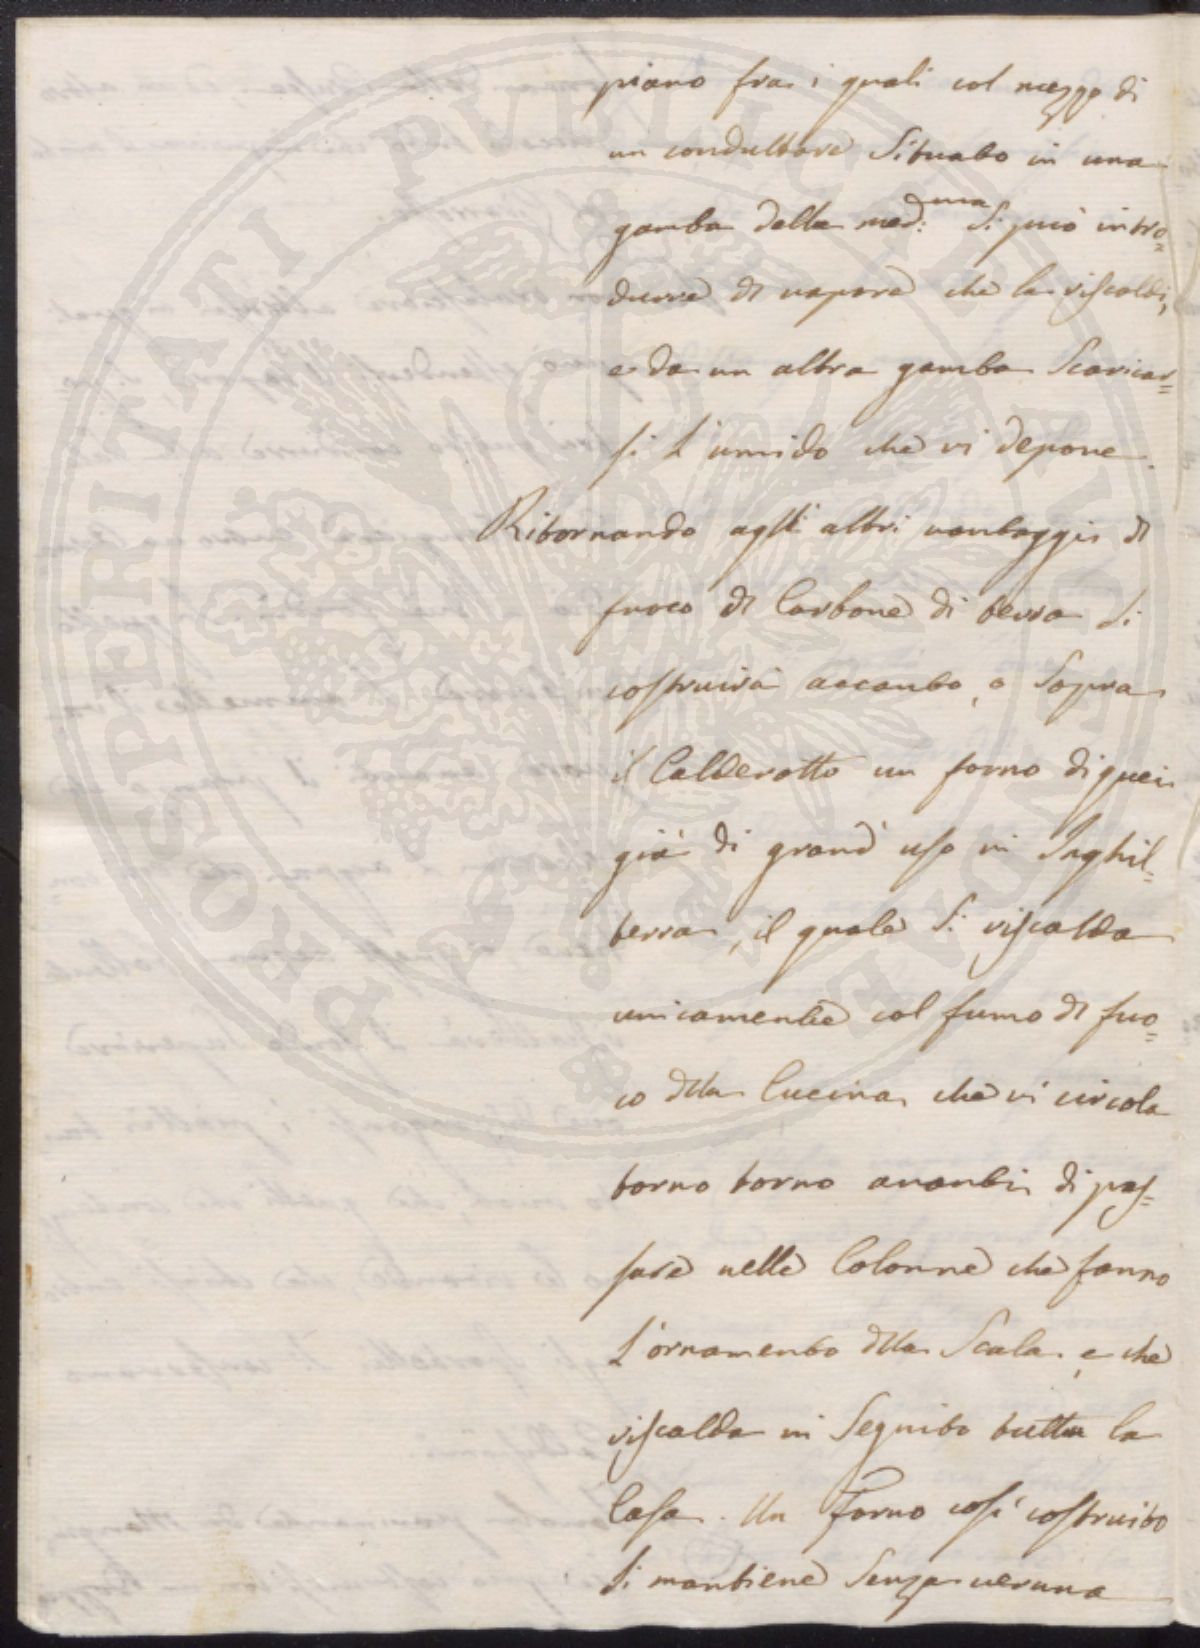 piano fra i quali col mezzo di
un conduttore Situato in una
gamba della med:ma Si può intro=
durre il vapore che la riscaldi,
e da un altra gamba Scaricar=
si l'umido che vi depone.
Ritornando agli altri vantaggi del
fuoco di Carbone di terra Si
costruirà accanto, o Sopra
il Calderotto un forno di quei
già di grand' uso in Inghil=
terra, il quale Si riscalda
unicamente col fumo del fuo=
co della Cucina, che vi circola
torno torno avanti di pas=
sare nelle Colonne che fanno
l'ornamento della Scala, e che
riscalda in Seguito tutta la
Casa. Un Forno così costruito
Si mantiene Senza veruna
PROSPERITATI PVBLICAE AVGENDAE